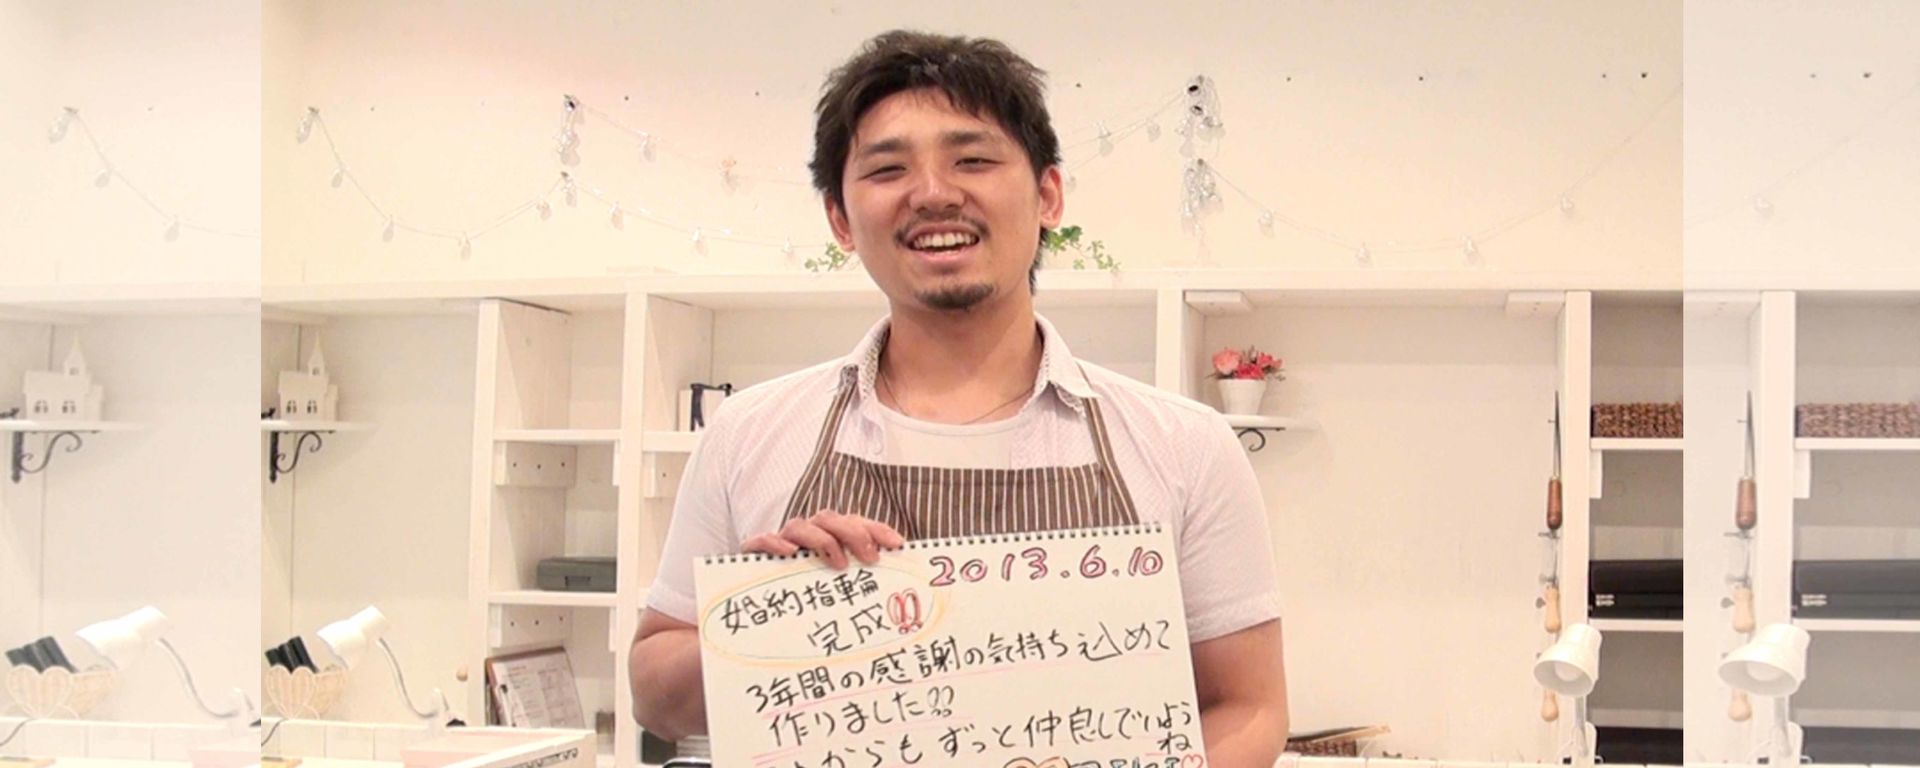 2013.6.10
婚約指輪
完成!!
3年間の感謝の気持ち込めて
作りました!!
からもずっと仲良しでいよう
ね